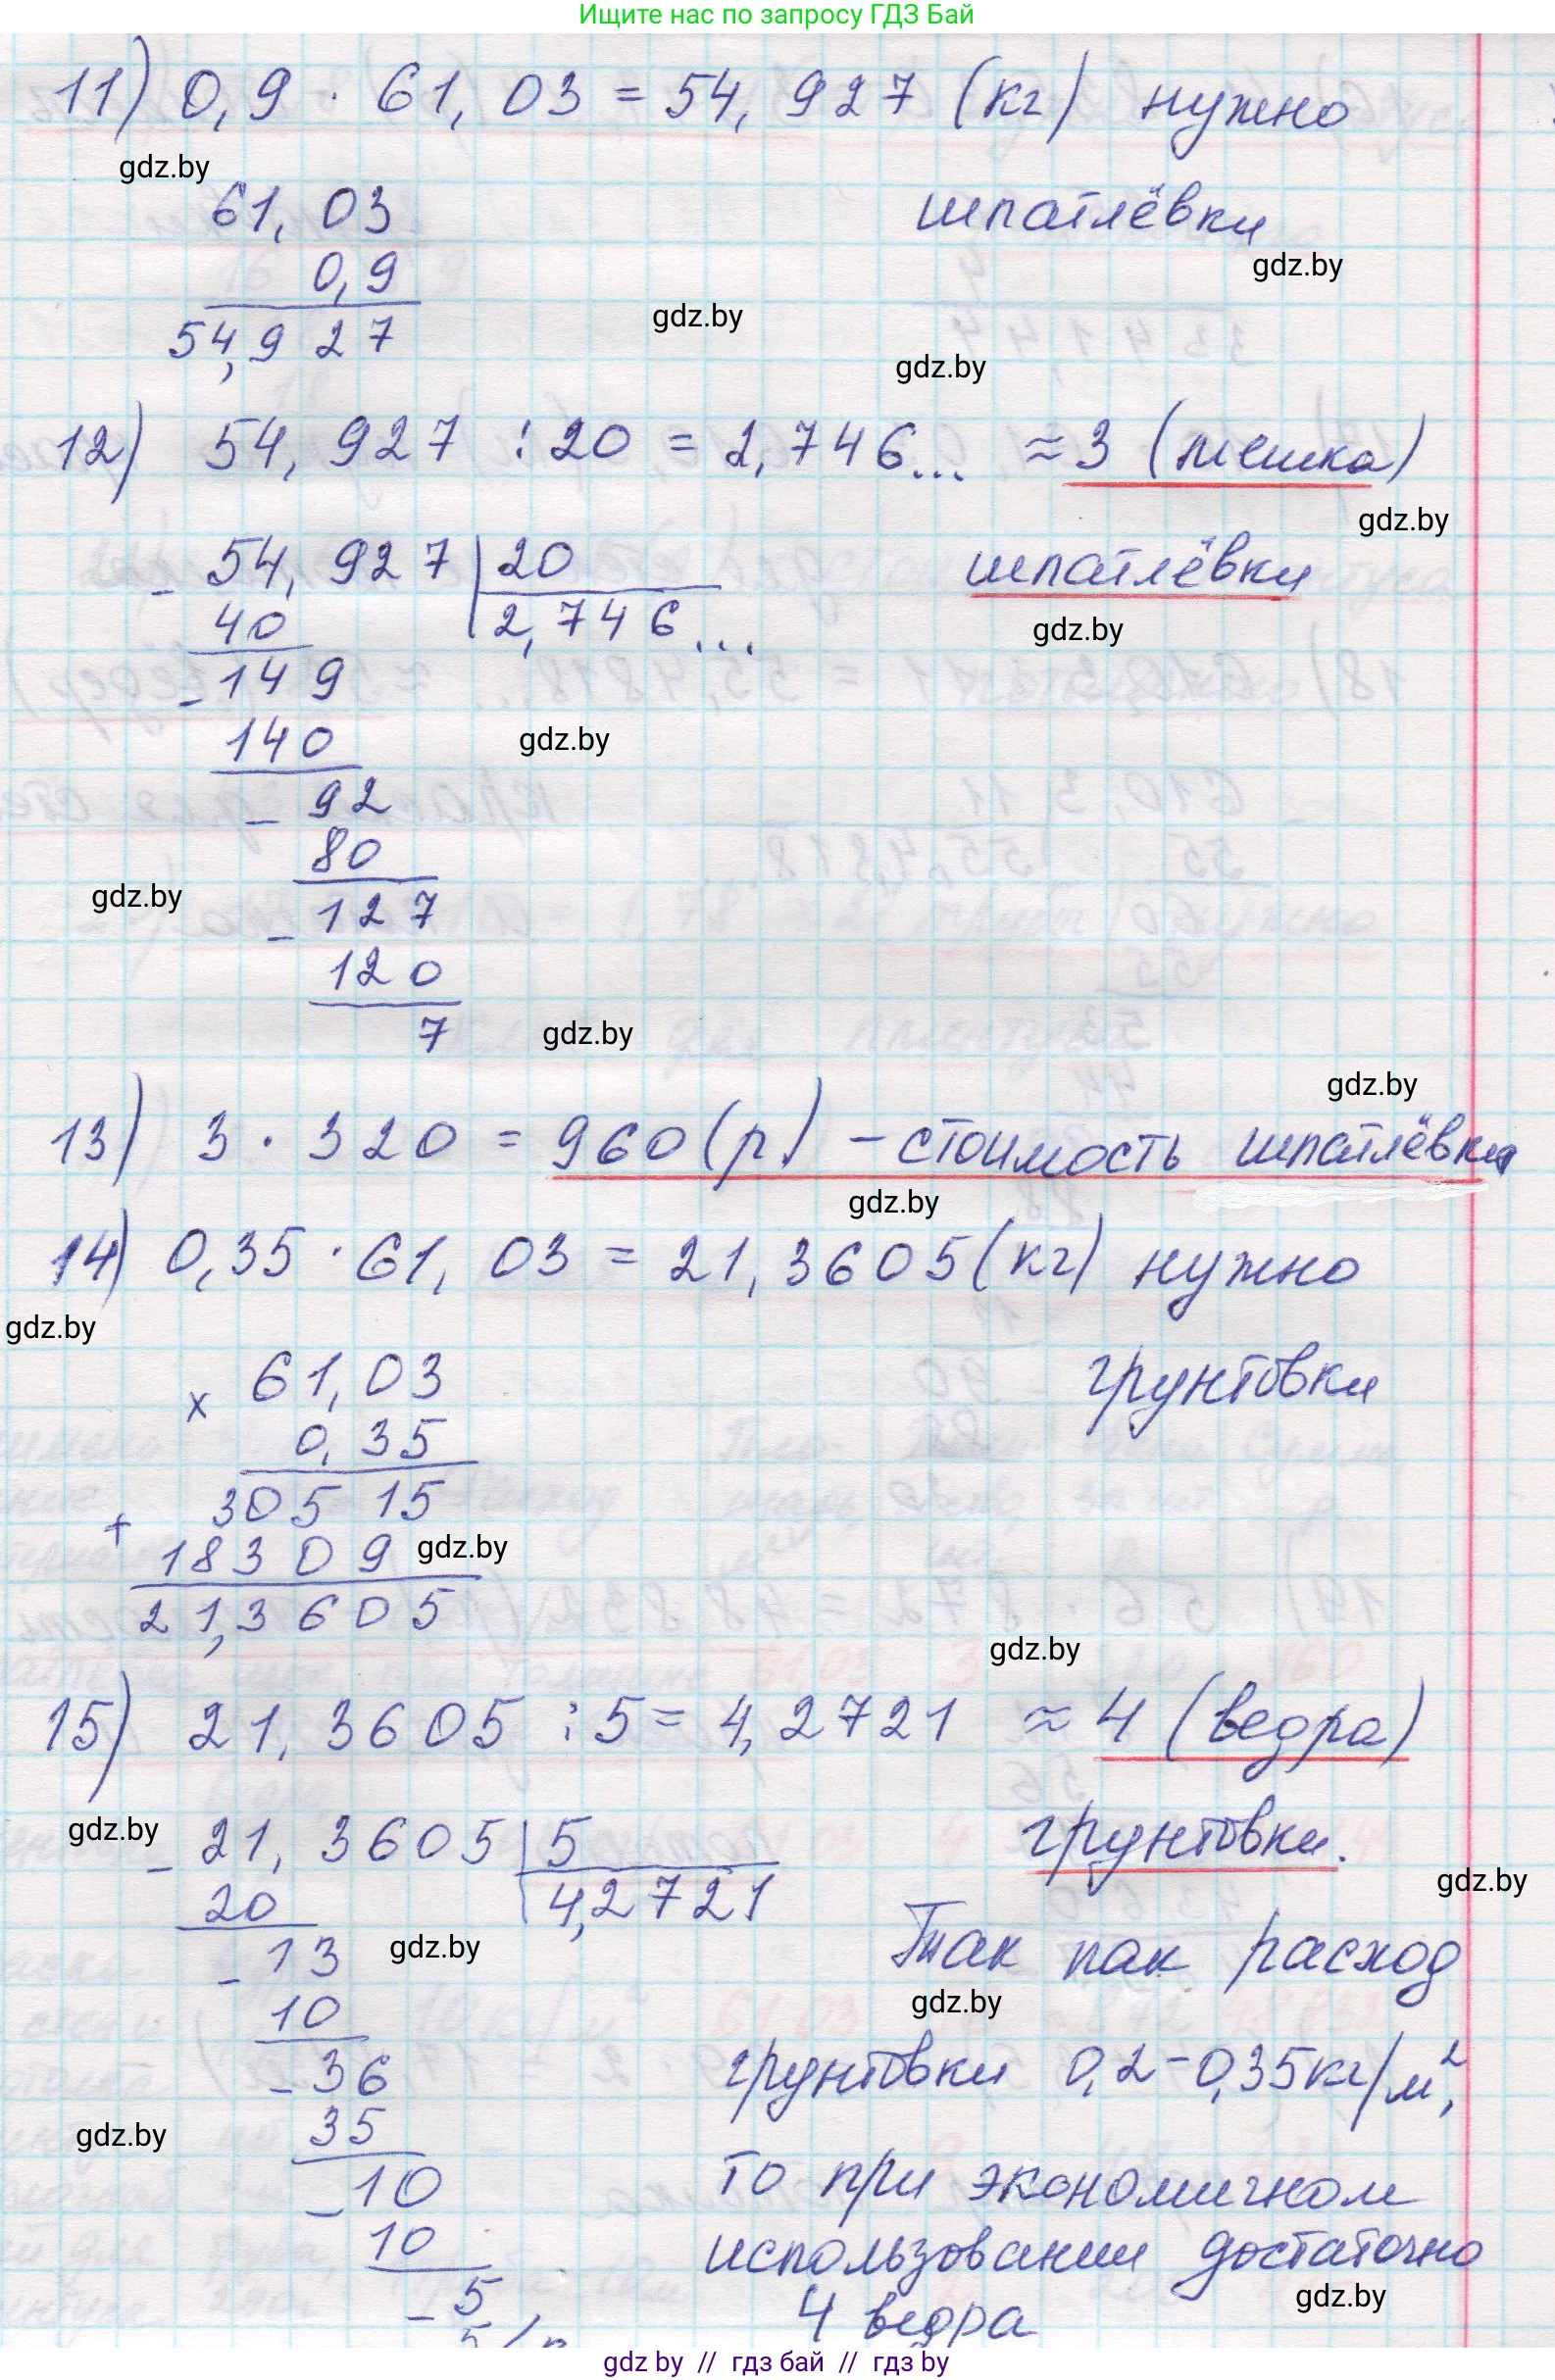 Ищите нас по запросу ГДЗ Бай
11) 0,9 · 61,03 = 54,927 (кг) нужно
gdz.by
61,03 шпатлёвки
gdz.by
0,9
gdz.by
54,927
gdz.by
12) 54,927 : 20 = 2,746... ≈ 3 (мешка)
gdz.by
- 54,927 | 20 шпатлёвки
40 2,746...
gdz.by
- 149
140
gdz.by
- 92
80
gdz.by
- 127
120
7
gdz.by
gdz.by
13) 3 · 320 = 960 (р) - стоимость шпатлёвки
gdz.by
14) 0,35 · 61,03 = 21,3605 (кг) нужно
gdz.by
x 61,03 грунтовки
0,35
+ 30515
18309
gdz.by
21,3605
gdz.by
15) 21,3605 : 5 = 4,2721 ≈ 4 (ведра)
gdz.by
- 21,3605 | 5 грунтовки.
gdz.by
20 4,2721
- 13 Так как расход
gdz.by
gdz.by
10
- 36 грунтовки 0,2-0,35 кг/м²,
35
gdz.by
- 10 то при экономичном
10 использовании достаточно
gdz.by
- 5 4 ведра
gdz by // гдз бай // gdz by